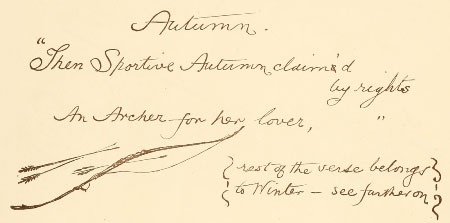 Autumn.
"Then Sportive Autumn claim'd
by rights
An Archer for her lover, "
{rest of the verse belongs}
{to Winter – see further on}